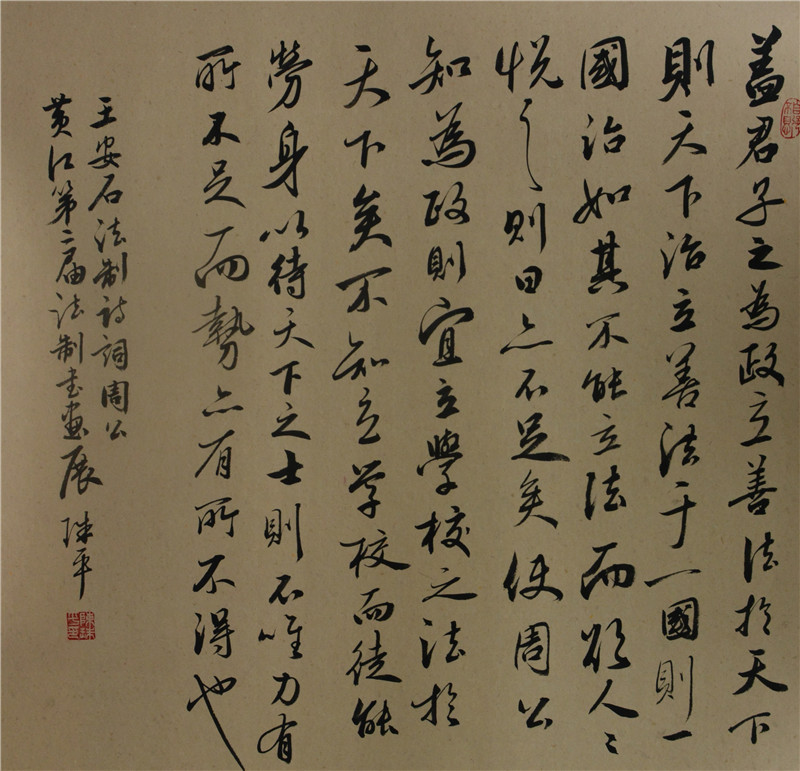 盖君子之為政立善法於天下
則天下治立善法于一國則一
國治如其不能立法而欲人々
悦之則曰亦不足矣使周公
知為政則宜立學校之法於
天下矣不知立学校而徒能
勞身以待天下之士則不唯力有
所不足而勢亦有所不得也
王安石法制詩詞周公
黄江第二届法制書畫展 陈平